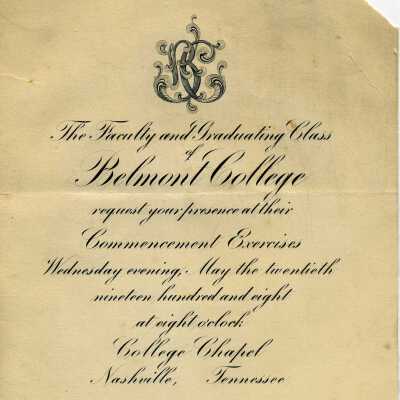 BC
The Faculty and Graduating Class
of
Belmont College
request your presence at their
Commencement Exercises
Wednesday evening, May the twentieth
nineteen hundred and eight
at eight o'clock
College Chapel
Nashville, Tennessee